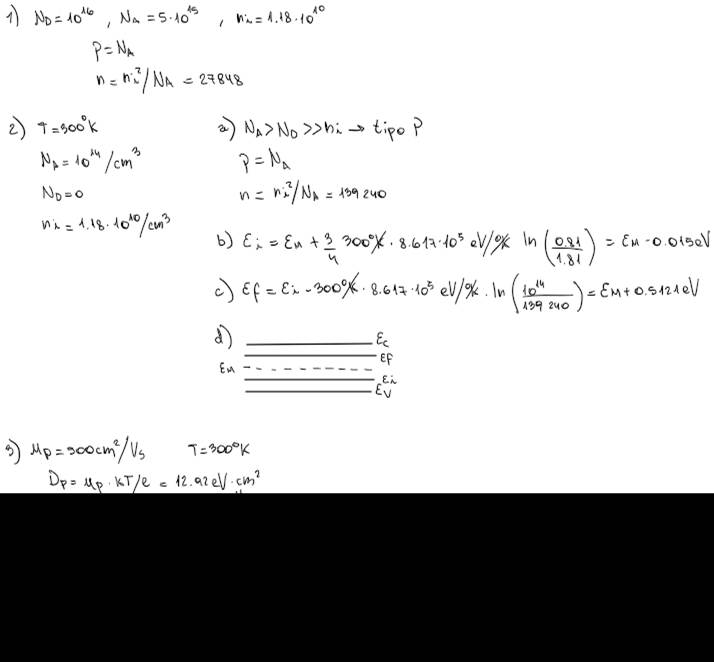 1) N_D = 10^16 , N_A = 5·10^15 , n_i = 1.18·10^10
p = N_A
n = n_i^2/N_A = 27848
2) T = 300°K
N_A = 10^14/cm^3
N_D = 0
n_i = 1.18·10^10/cm^3
a) N_A > N_D >> n_i → tipo P
p = N_A
n = n_i^2/N_A = 139 240
b) E_i = E_M + 3/4 300°K · 8.617·10^5 eV/°K ln (0.81/1.81) = E_M - 0.015eV
c) E_f = E_i - 300°K · 8.617·10^5 eV/°K · ln (10^14/139 240) = E_M + 0.5121eV
d)
E_c
E_f
E_M
E_i
E_V
3) μ_p = 500cm^2/Vs T = 300°K
D_p = μ_p · kT/e = 12.92 eV·cm^2